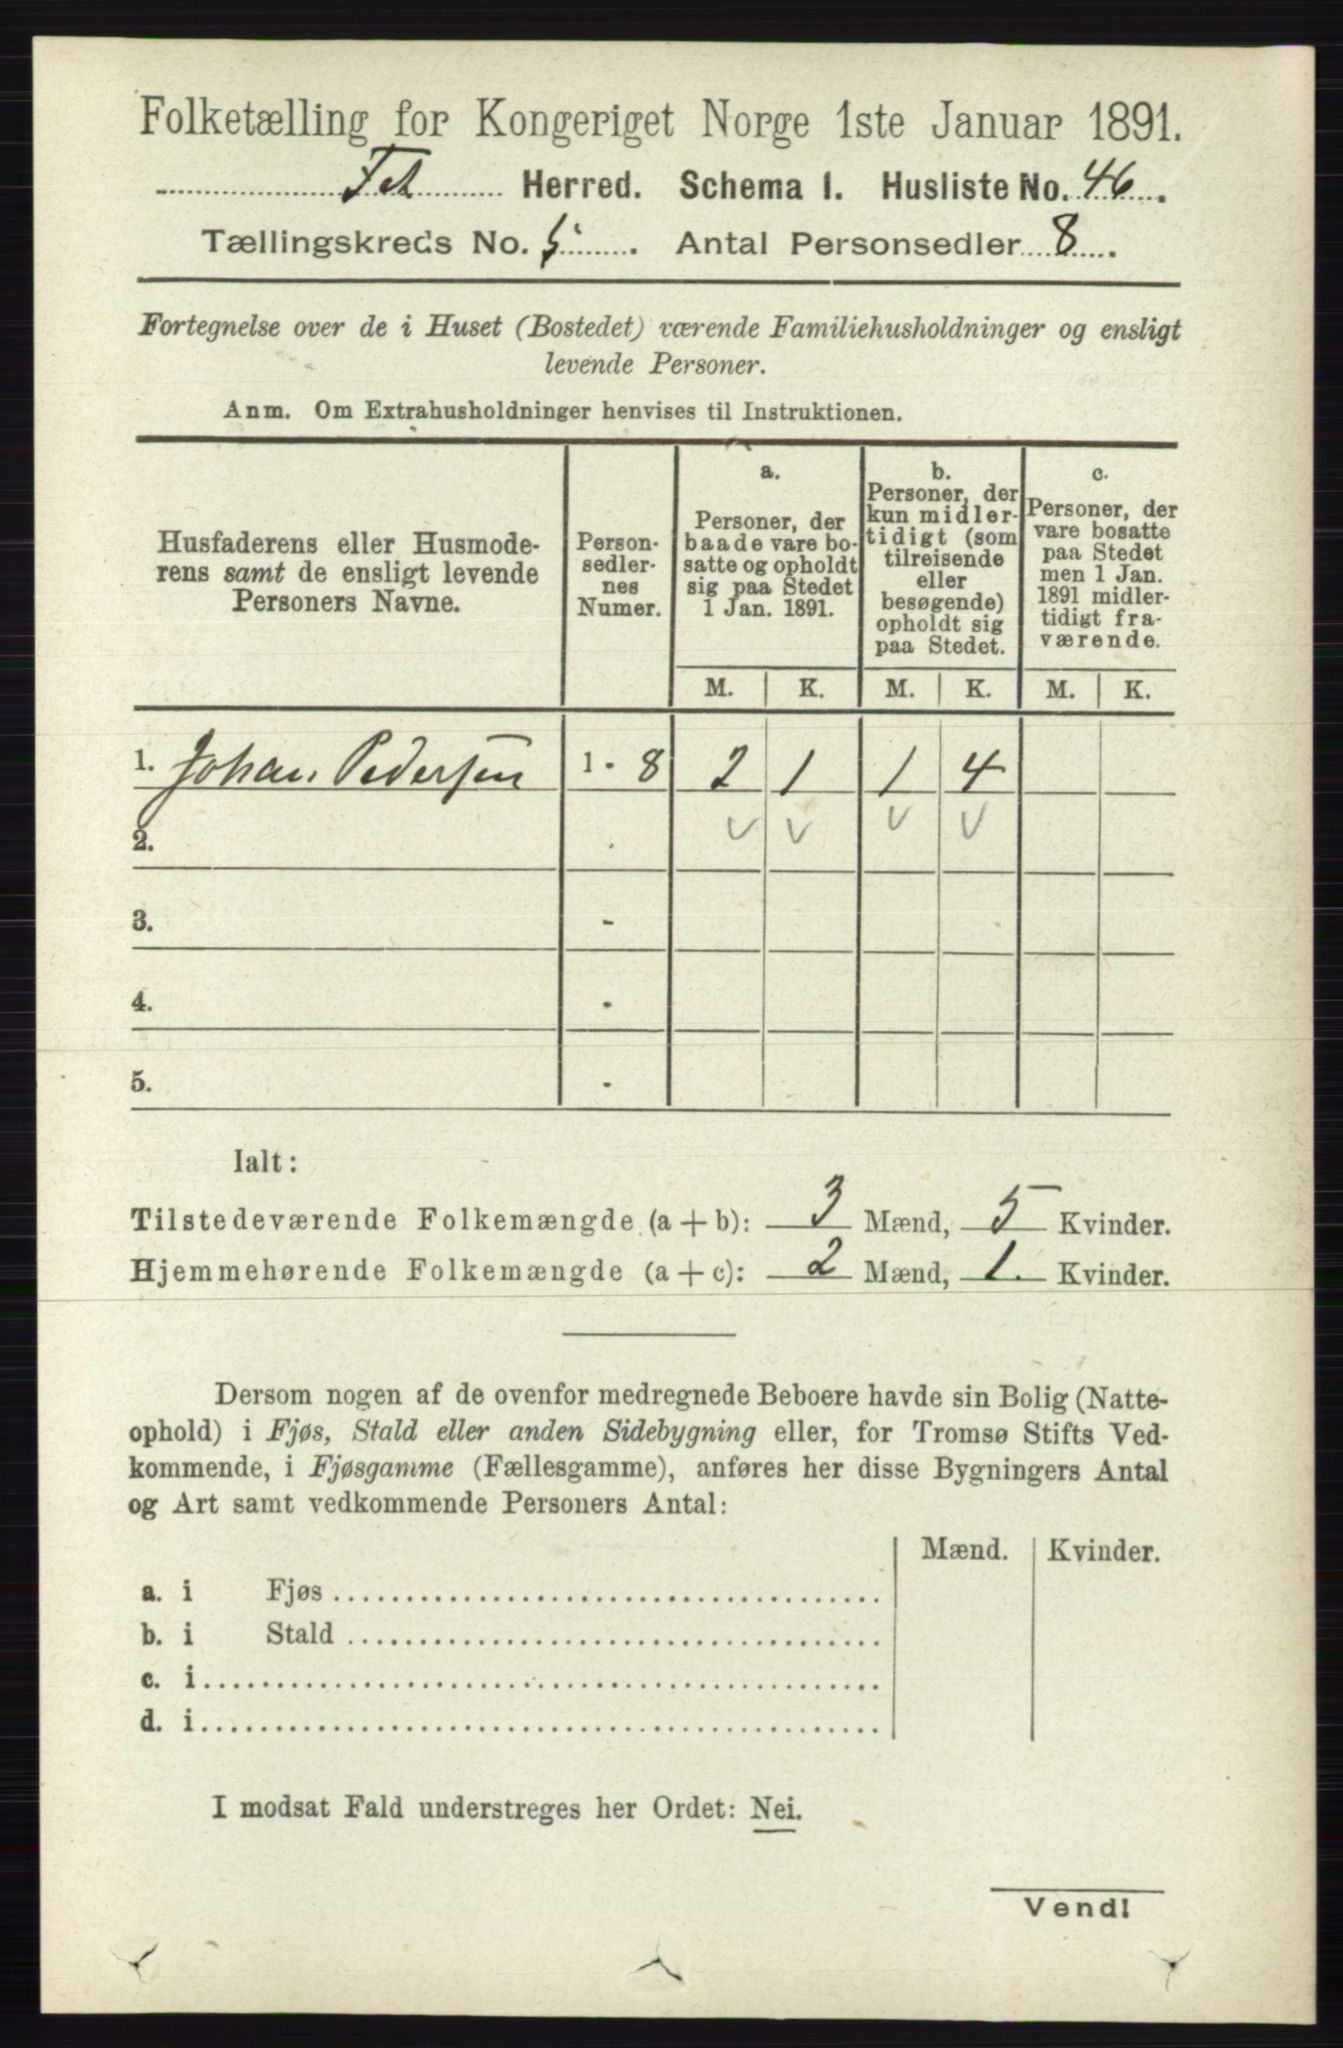 Folketælling for Kongeriget Norge 1ste Januar 1891.
Fet Herred. Schema 1. Husliste No. 46.
Tællingskreds No. 5. Antal Personsedler 8.
Fortegnelse over de i Huset (Bostedet) værende Familiehusholdninger og ensligt
levende Personer.
Anm. Om Extrahusholdninger henvises til Instruktionen.
Husfaderens eller Husmode-
rens samt de ensligt levende
Personers Navne.
Person-
sedler-
nes
Numer.
a.
Personer, der
baade vare bo-
satte og opholdt
sig paa Stedet
1 Jan. 1891.
b.
Personer, der
kun midler-
tidigt (som
tilreisende
eller
besøgende)
opholdt sig
paa Stedet.
c.
Personer, der
vare bosatte
paa Stedet
men 1 Jan.
1891 midler-
tidigt fra-
værende.
M. K. M. K. M. K.
1. Johan Pedersen 1 - 8 2 1 1 4
2.
3. -
4. -
5. -
Ialt:
Tilstedeværende Folkemængde (a + b): 3 Mænd, 5 Kvinder.
Hjemmehørende Folkemængde (a + c): 2 Mænd, 1. Kvinder.
Dersom nogen af de ovenfor medregnede Beboere havde sin Bolig (Natte-
ophold) i Fjøs, Stald eller anden Sidebygning eller, for Tromsø Stifts Ved-
kommende, i Fjøsgamme (Fællesgamme), anføres her disse Bygningers Antal
og Art samt vedkommende Personers Antal:
Mænd. Kvinder.
a. i Fjøs
b. i Stald
c. i
d. i
I modsat Fald understreges her Ordet: Nei.
Vend!